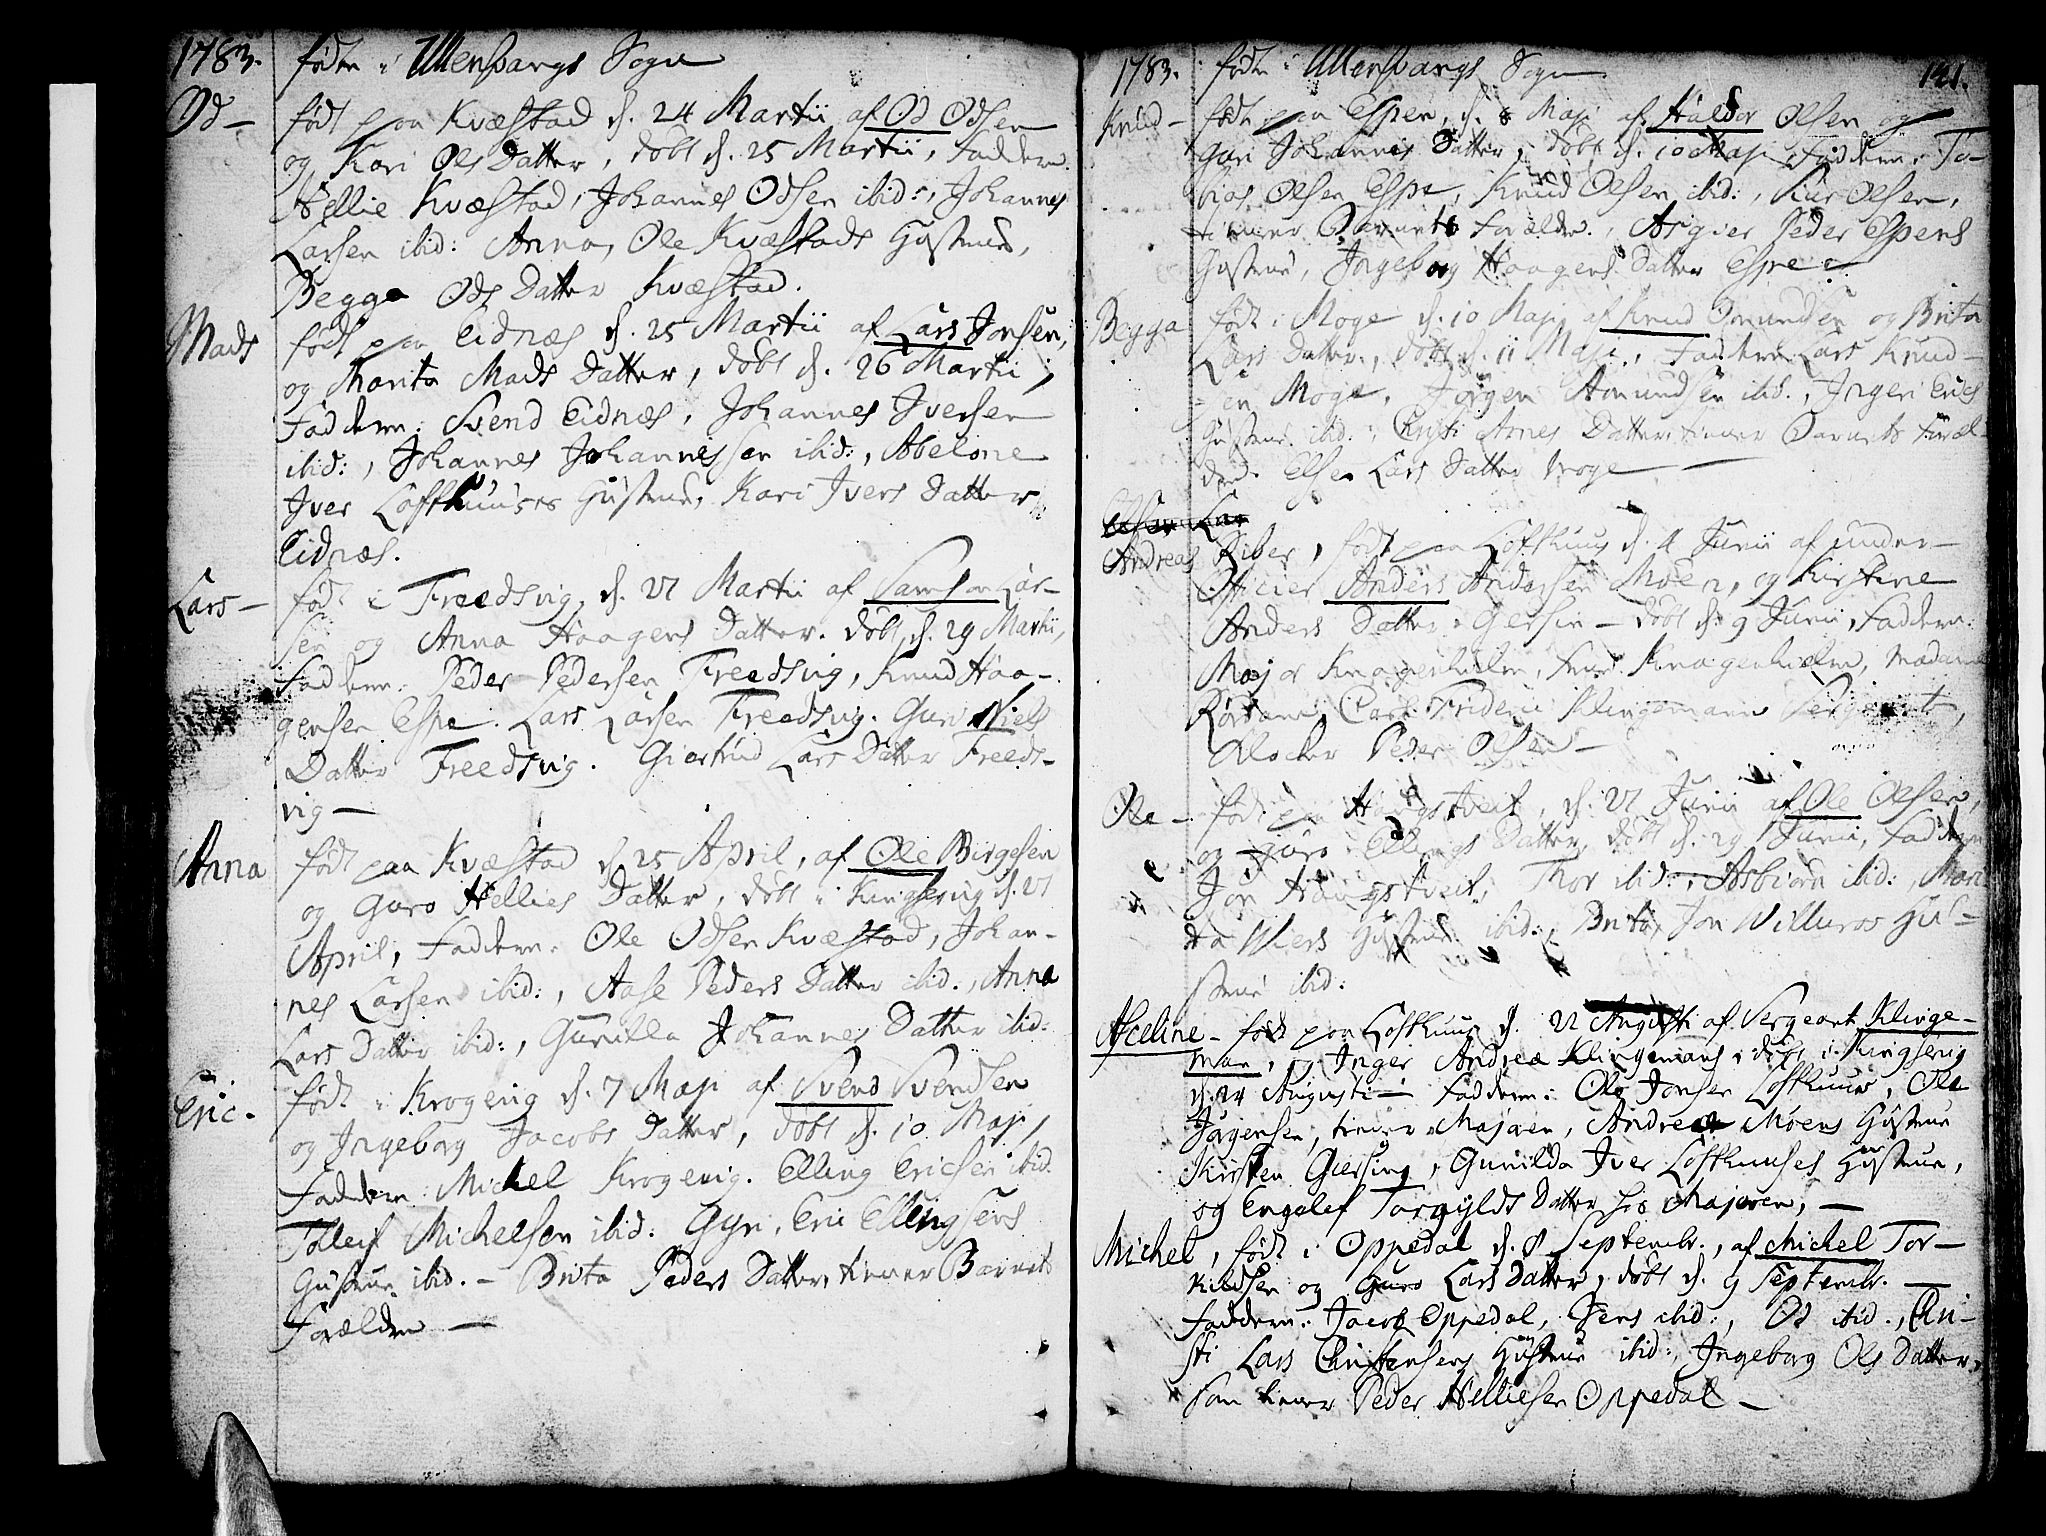 1783. fødte i Ullensvangs Sogn
Od – født paa Kvæstad d. 24 Martii af Od Odsen
og Kari Ols Datter, døbt d. 25 Martii, Faddern:
Hellie Kvæstad, Johannes Odsen ibid:, Johannes
Larsen ibid: Anna, Ole Kvæstads Hustrue,
Begga Ods Datter Kvæstad.
Mads født paa Eidnæs d. 25 Martii af Lars Jonsen,
og Marita Mads Datter, døbt d. 26 Martii,
Faddern: Svend Eidnæs, Johannes Iversen
ibid:, Johannes Johannessen ibid:, Abelone
Iver Lofthuuses Hustrue, Kari Ivers Datter
Eidnæs.
Lars – født i Freedsvig d. 27 Martii af Samson Lar-
sen og Anna Haagens Datter. døbt d. 29 Martii,
Faddern: Peder Pedersen Freedsvig, Knud Haa-
gensen Espe. Lars Larsen Freedsvig. Guri Niels
Datter Freedsvig. Giertrud Lars Datter Freeds-
vig –
Anna født paa Kvæstad d. 25 April, af Ole Birgesen
og Guro Hellies Datter, døbt i Kingservig d. 27
April, Faddern: Ole Odsen Kvæstad, Johan-
nes Larsen ibid:, Aase Peders Datter ibid., Anna
Lars Datter ibid:, Gunilla Johannes Datter ibid:
Eric. født i Krogevig d. 7 Maji af Svend Svendsen
og Ingeborg Jacobs Datter, døbt d. 10 Maji,
Faddern: Michel Krogevig. Elling Ericsen ibid.
Tolleif Michelsen ibid: Gyri, Eric Ellingsens
Hustrue ibid. – Brita Peders Datter, tiener Barnets
Forældre –
1783. fødte i Ullensvangs Sogn 141.
Knud – født paa Espen, d. 8 Maji af Haldor Olsen og
Guri Johannis Datter, døbt d. 10 Maji, Faddern: To-
bias Olsen Espe, Knud Olsen ibid:, Siur Olsen,
tiener Barnets Forældre, Asgier Peder Espens
Hustrue, Ingeborg Haagens Datter Espe –
Begga født i Moge d. 10 Maji af Knud Omundsen og Brita
Lars Datter, døbt d. 11 Maji, Faddern: Lars Knud-
sen Moge, Jørgen Amundsen ibid., Ingeri Erics
Hustrue ibid:, Christi Arnes Datter, tiener Barnets Foræl-
dre. Else Lars Datter Moge –
Andreas Riber, født paa Lofthuus d. 4 Junii af under-
Officier Anders Andersen Moen, og Kirstene
Anders Datter Giersin – døbt d. 9 Junii, Faddern.
Major Knagenhielm, Frue Knagenhielm, Madame
Rørdam, Carl Frideric Klingemann Sergeant,
Klocker Peder Olsen –
Ole – født paa Haugstveit, d. 27 Junii af Ole Olsen,
og Guro Ellings Datter, døbt d. 29 Junii, Faddern
Jon Haugstveit, Thor ibid:, Asbiørn ibid:, Mari
ta Wiers Hustrue ibid:, Brita, Jon Willuros Hu-
strue ibid:
Aceline – født paa Lofthuus d. 22 Augusti af Sergeant Klinge-
man, og Inger Andrea Klingemans, døbt i Kingservig
d. 24 Augusti – Faddern: Ole Jonsen Lofthuus, Ole
Jørgensen, tiener Majoren, Andreas Moens Hustrue
Kirsten Giersing, Gunilda Iver Lofthuuses Hustrue,
og Engelef Torgylds Datter hos Majoren, –
Michel, født i Oppedal d. 8 Septembr., af Michel Tor-
kildsen og Guro Lars Datter, døbt d. 9 Septembr. –
Faddern: Jacob Oppedal, Jens ibid:, Od ibid., Chri-
sti Lars Christensens Hustrue ibid:, Ingeborg Ols Datter,
som tiener Peder Helliesen Oppedal –